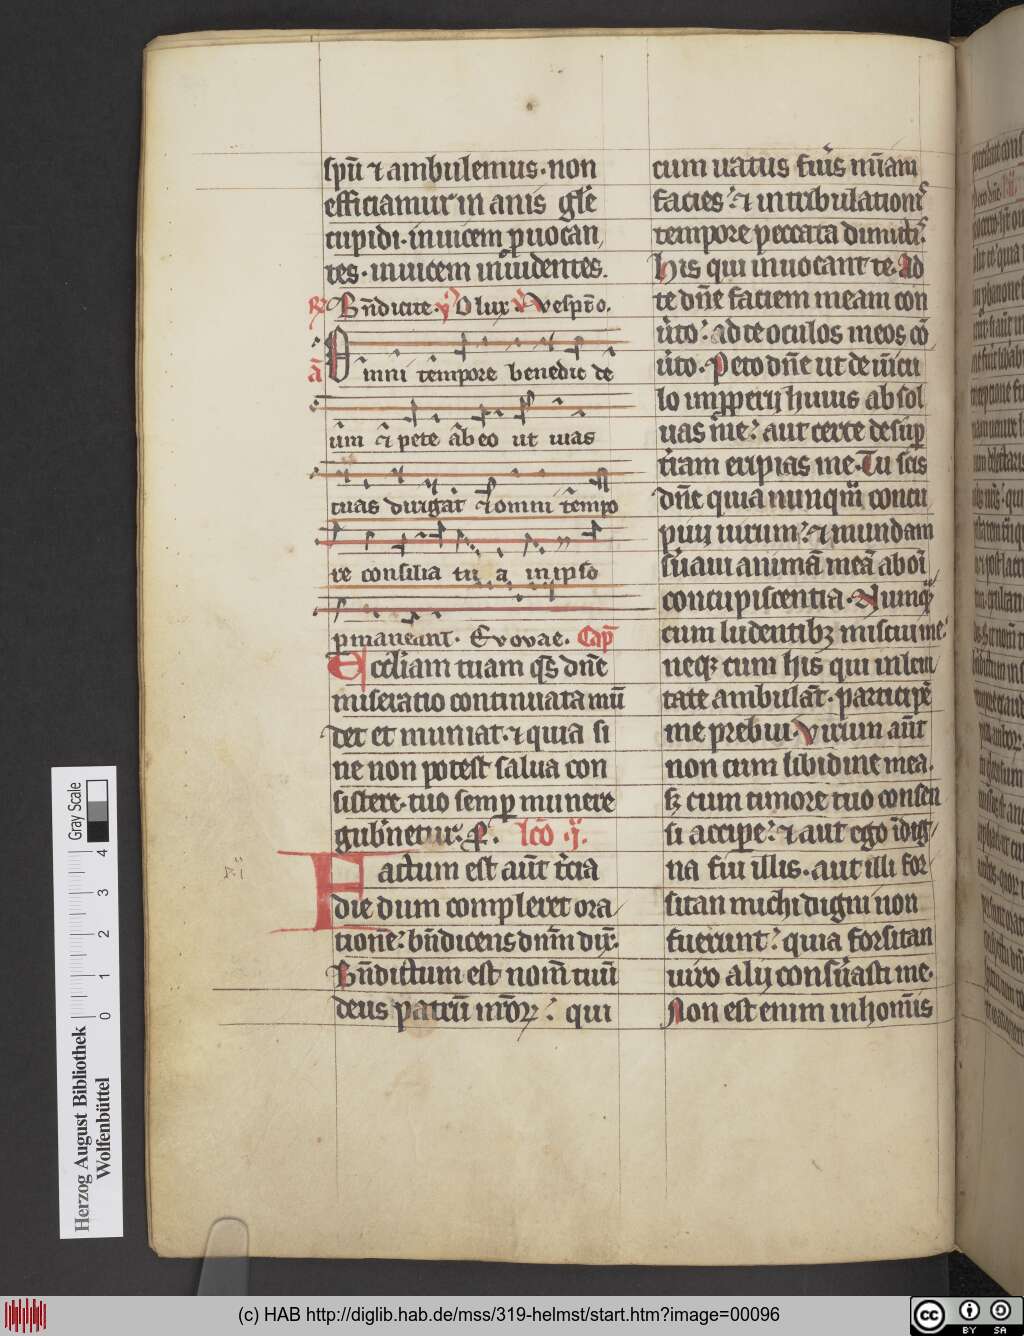 spū ⁊ ambulemus. non
efficiamur in anis gle
cupidi. inuicem ꝓuocan
tes. inuicem inuidentes.
Bn̄dicite. O lux. Vespo.
ā Omni tempore benedic de
um ⁊ pete ab eo ut uias
tuas dirigat ⁊ omni tempo
re consilia tua in ipso
permaneant. Euouae. Cap̄
Eccliam tuam qs dn̄e
miseratio continuata mū
det et muniat. ⁊ quia si
ne non potest salua con
sistere. tuo semꝑ munere
gubnetur. P. lco .ij.
Factum est aut tcia
die dum compleret ora
tionē. bn̄dicens dnm dix.
Bn̄dictum est nom tuū
deus patrū nrōꝝ. qui
cum iratus fuis mīam
facies. ⁊ in tribulationis
tempore peccata dimittis.
his qui inuocant te. Ad
te dn̄e faciem meam con
uto. ad te oculos meos cō
uto. Peto dn̄e ut de uicu
lo improperij huius absol
uas me. aut certe desuꝑ
tram eripias me. Tu scis
dn̄e quia nunqm concu
piui uirum. ⁊ mundam
suaui animā meā ab oī
concupiscentia. Nunqꝫ
cum ludentibꝫ miscui me.
neqꝫ cum his qui in leui
tate ambulāt. participē
me prebui. Virum aut
non cum libidine mea.
sꝫ cum timore tuo consen
si accipe. ⁊ aut ego idig
na fui illis. aut illi for
sitan michi digni non
fuerunt. quia forsitan
uiro alij conseruasti me.
Non est enim in homis
Gray Scale
4
3
2
1
0
Herzog August Bibliothek
Wolfenbüttel
(c) HAB http://diglib.hab.de/mss/319-helmst/start.htm?image=00096
cc BY SA